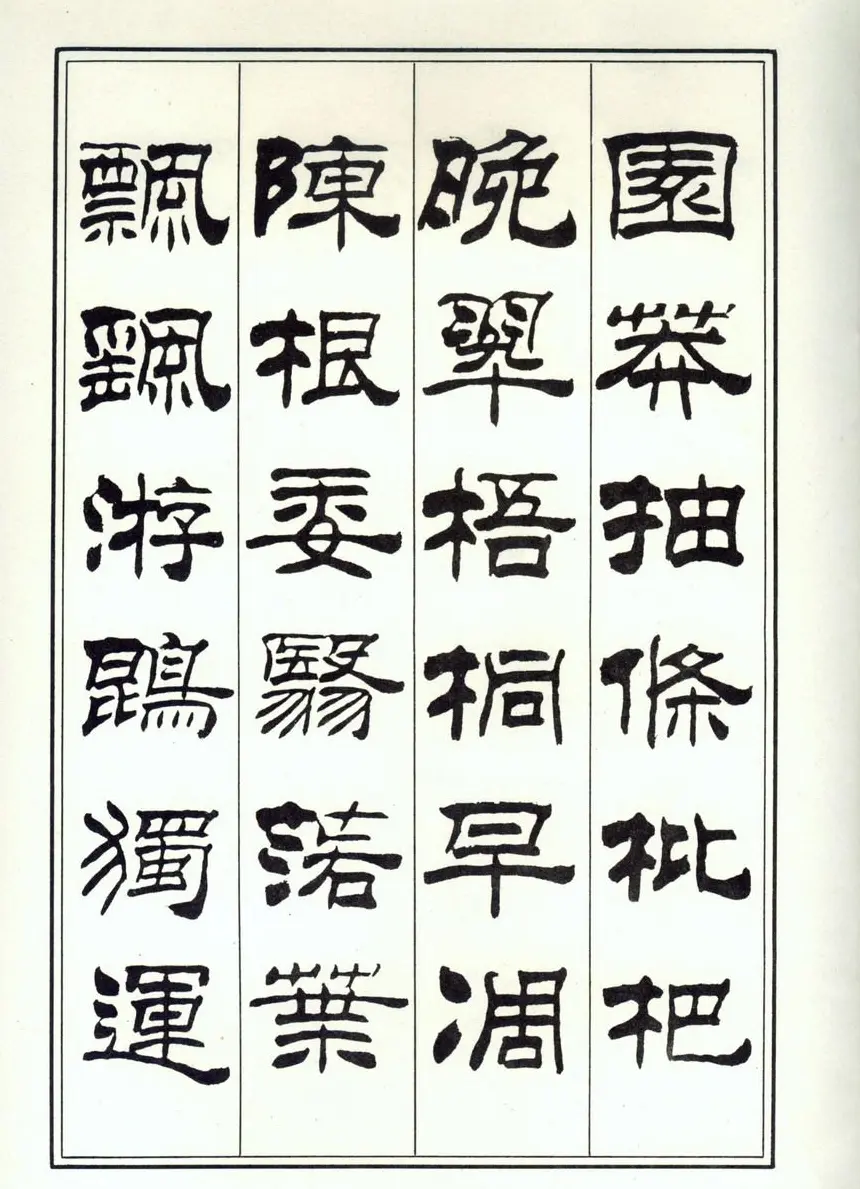 園莽抽條枇杷
晚翠梧桐早凋
陳根委翳落葉
飄飖游鵾獨運